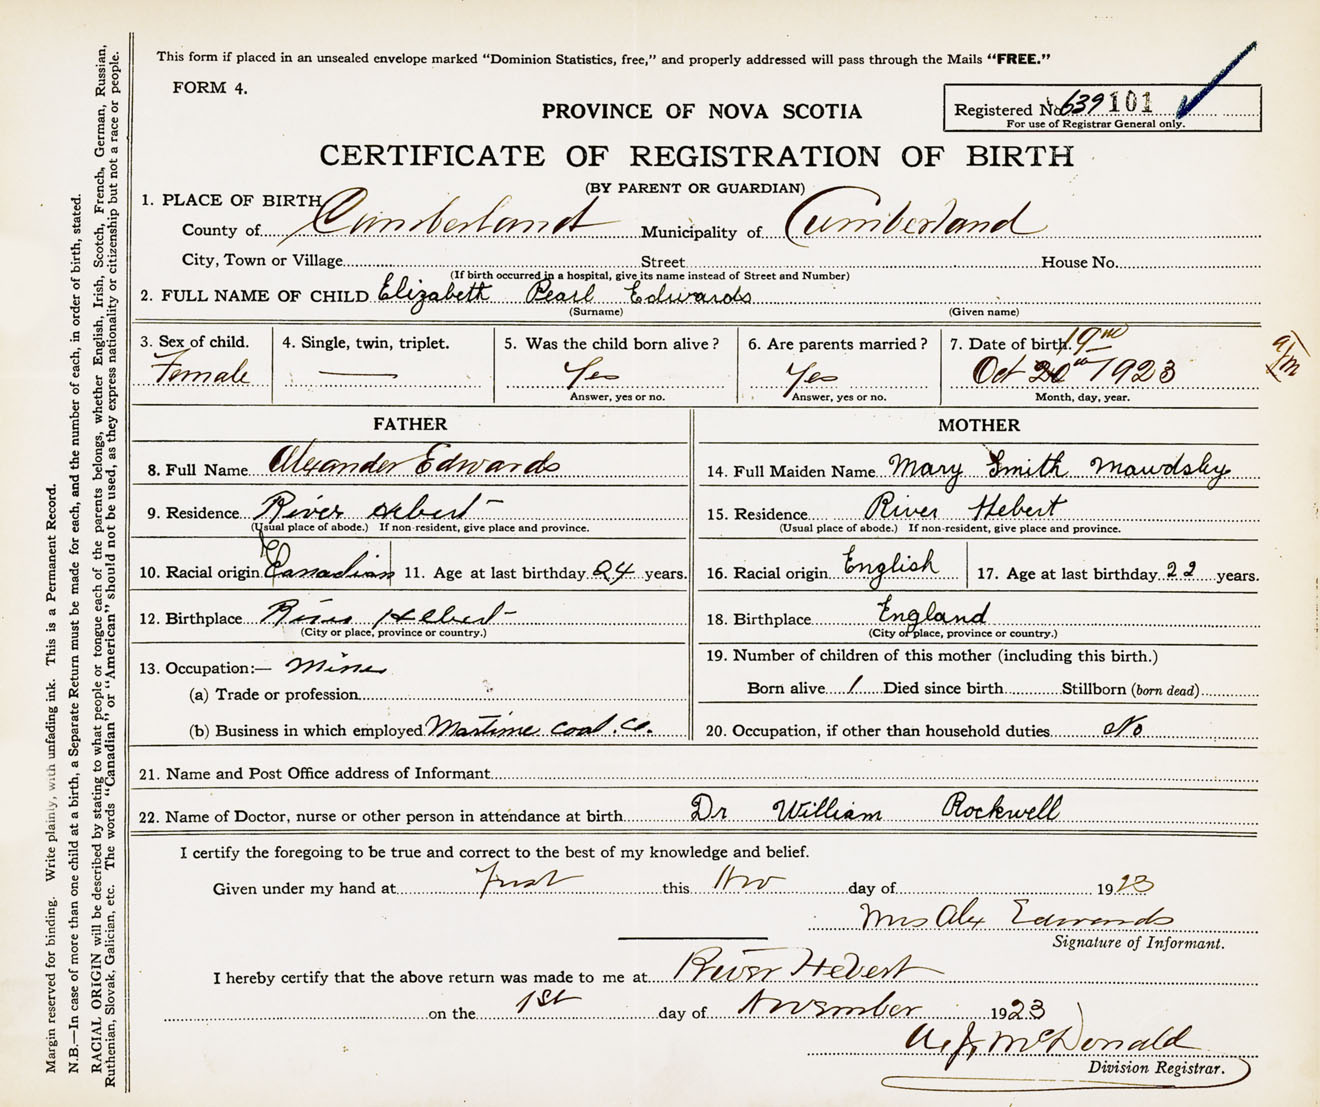 This form if placed in an unsealed envelope marked "Dominion Statistics, free," and properly addressed will pass through the Mails "FREE."
FORM 4.
Registered No. 639 101
For use of Registrar General only.
PROVINCE OF NOVA SCOTIA
CERTIFICATE OF REGISTRATION OF BIRTH
(BY PARENT OR GUARDIAN)
1. PLACE OF BIRTH
County of Cumberland Municipality of Cumberland
City, Town or Village Street House No.
(If birth occurred in a hospital, give its name instead of Street and Number)
2. FULL NAME OF CHILD Elizabeth Pearl Edwards
(Surname) (Given name)
3. Sex of child. 4. Single, twin, triplet. 5. Was the child born alive? 6. Are parents married? 7. Date of birth. 19
Female — Yes Yes Oct 20th 1923
Answer, yes or no. Answer, yes or no. Month, day, year.
FATHER MOTHER
8. Full Name Alexander Edwards 14. Full Maiden Name Mary Smith Mawdsley
9. Residence River Hebert 15. Residence River Hebert
(Usual place of abode.) If non-resident, give place and province. (Usual place of abode.) If non-resident, give place and province.
10. Racial origin Canadian 11. Age at last birthday 24 years. 16. Racial origin English 17. Age at last birthday 22 years.
12. Birthplace River Hebert 18. Birthplace England
(City or place, province or country.) (City or place, province or country.)
13. Occupation:— Miner 19. Number of children of this mother (including this birth.)
(a) Trade or profession Born alive 1 Died since birth Stillborn (born dead)
(b) Business in which employed Maritime Coal. Co. 20. Occupation, if other than household duties No
21. Name and Post Office address of Informant
22. Name of Doctor, nurse or other person in attendance at birth Dr William Rockwell
I certify the foregoing to be true and correct to the best of my knowledge and belief.
Given under my hand at First this Nov day of 1923
Mrs Alex Edwards
Signature of Informant.
I hereby certify that the above return was made to me at River Hebert
on the 1st day of November 1923
McDonald
Division Registrar.
Margin reserved for binding. Write plainly, with unfading ink. This is a Permanent Record.
N.B.—In case of more than one child at a birth, a Separate Return must be made for each, and the number of each, in order of birth, stated.
RACIAL ORIGIN will be described by stating to what people or tongue each of the parents belongs, whether English, Irish, Scotch, French, German, Russian,
Ruthenian, Slovak, Galician, etc. The words "Canadian" or "American" should not be used, as they express nationality or citizenship but not a race or people.